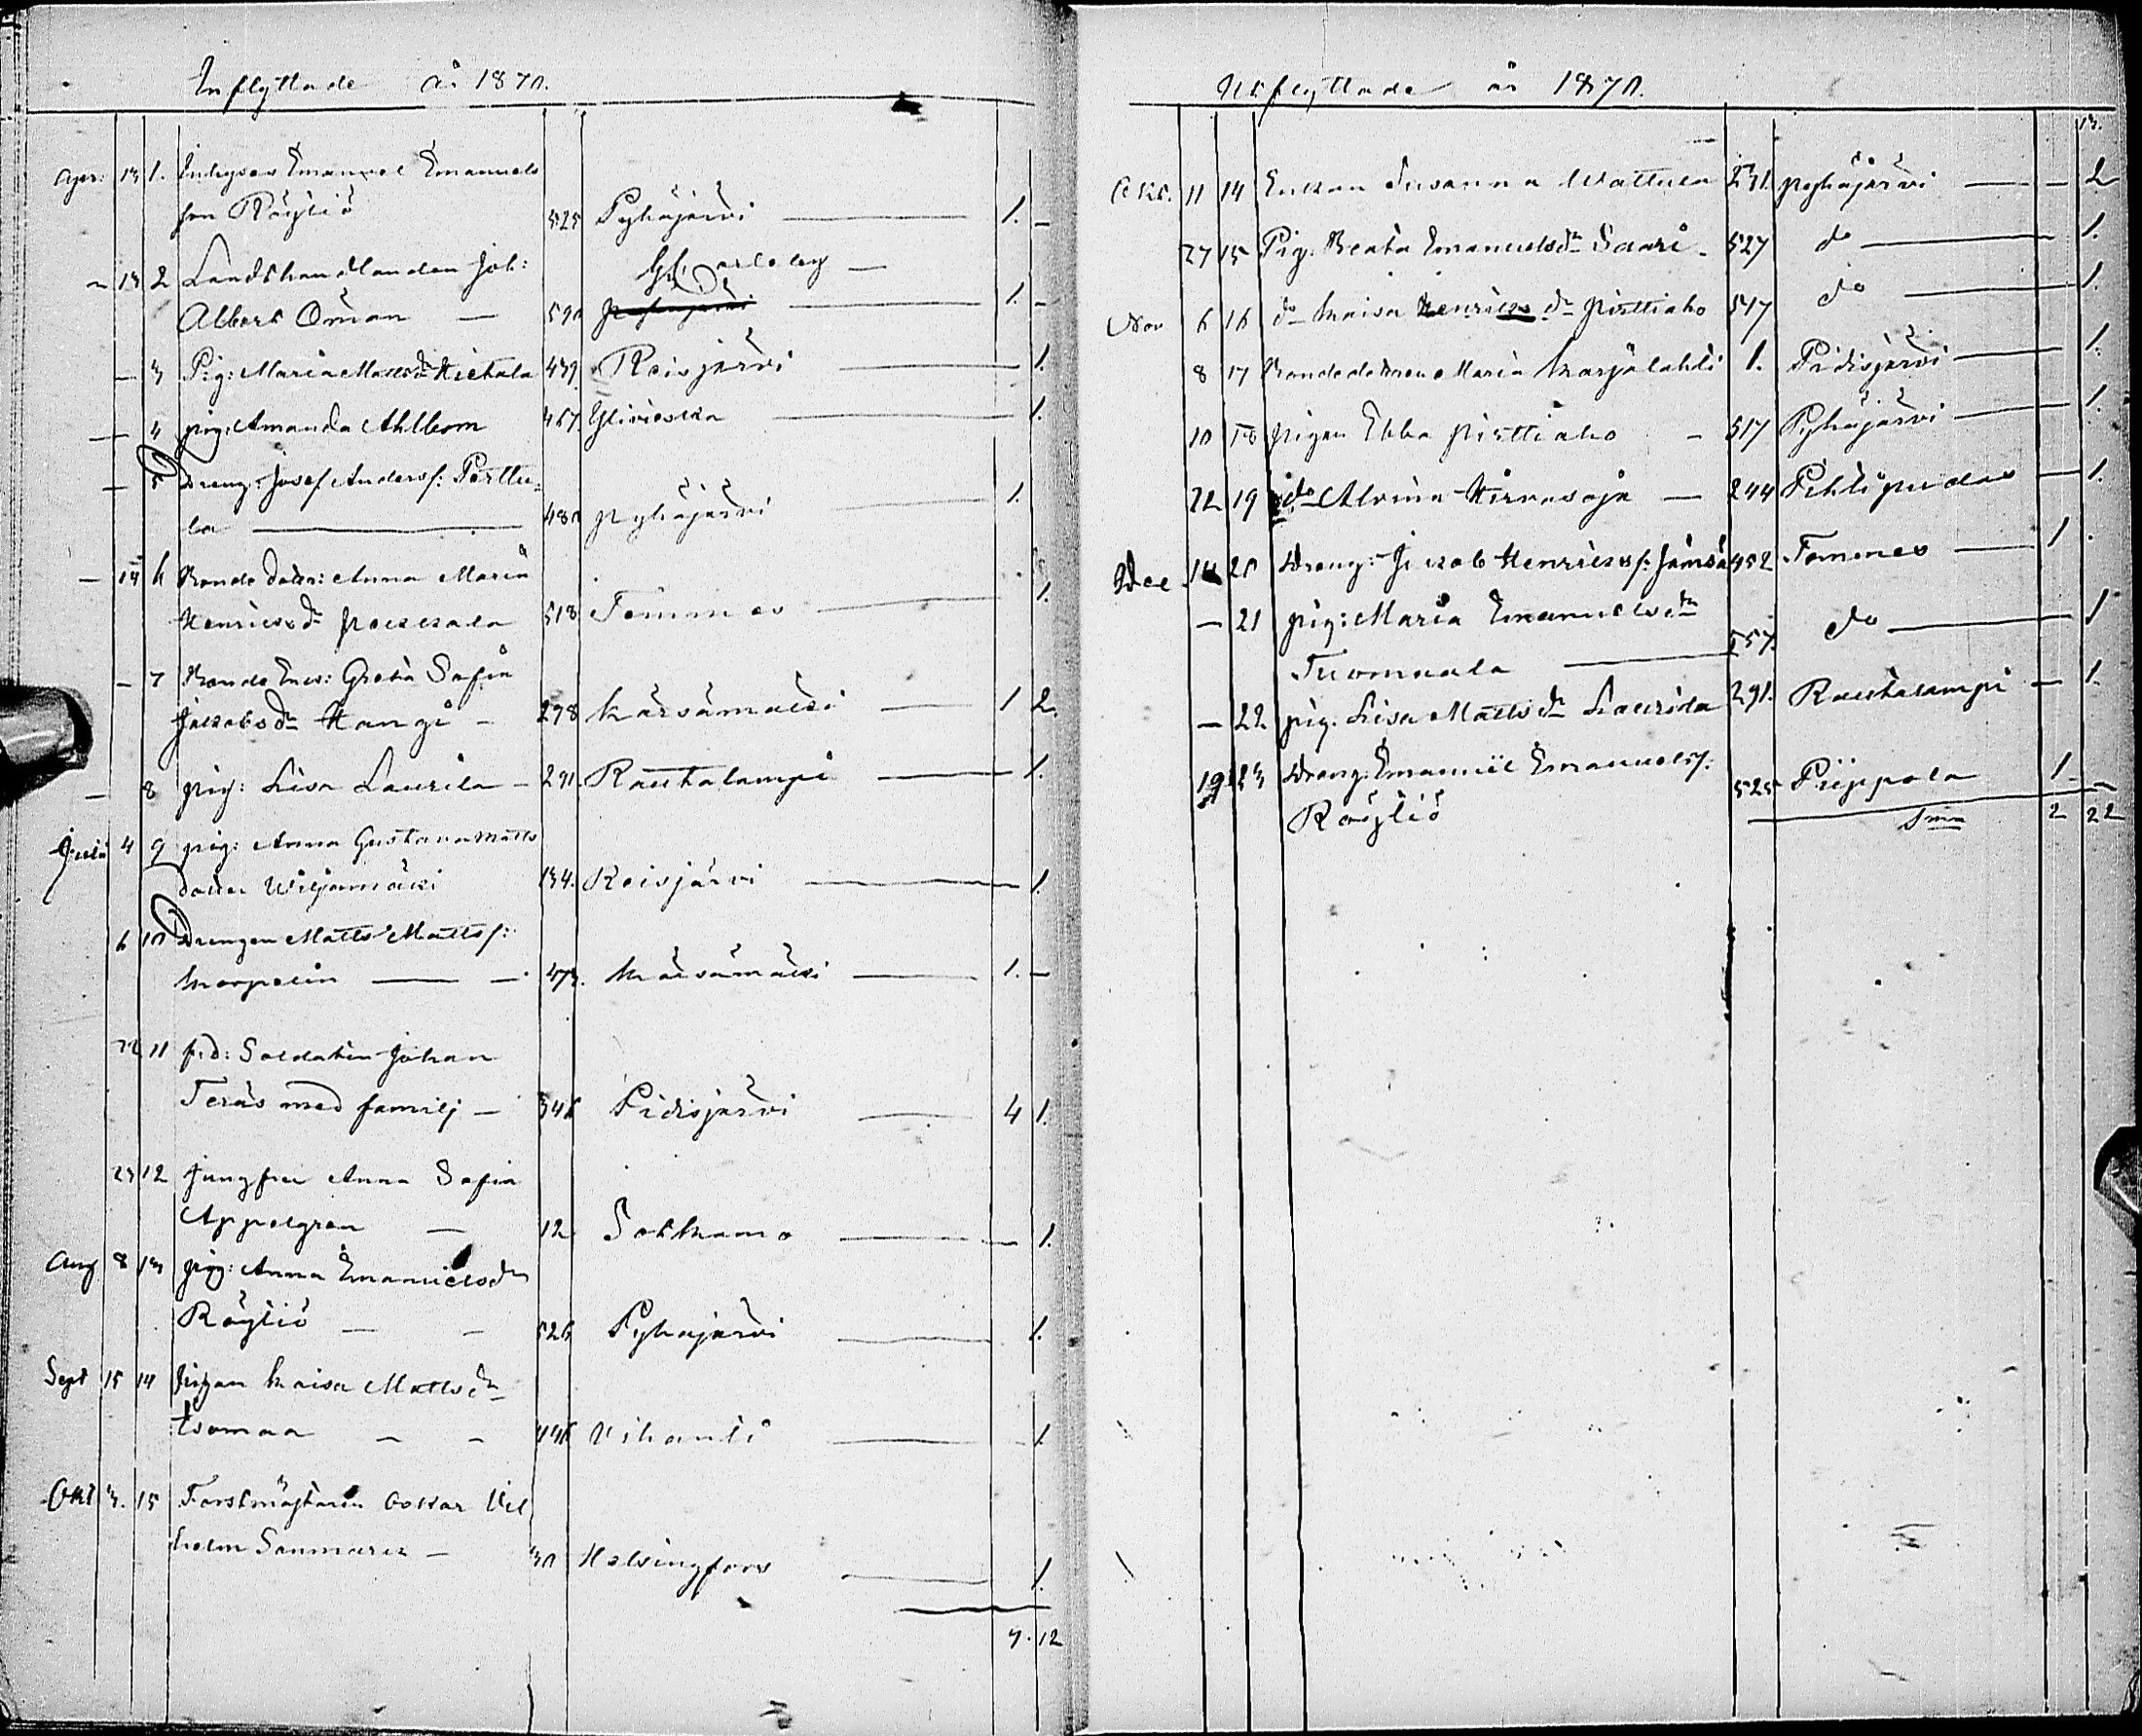 Inflyttade år 1870.
Apr: 13 1. Inhyses Emanuel Emanuels
son Räyliö 525 Pyhäjärvi — 1. —
13 2 Landthandlanden Joh: G:Carleby —
Albert Öman — 590 — 1. —
— 3 Pig: Maria Mattsdr Hietala 439 Reisjärvi — 1.
— 4 pig: Amanda Ahlbom 467 Ylivieska — 1.
— 5 Dreng: Josef Andersf: Perttu-
la — 480 Pyhäjärvi 1.
— 14 6 Bonde dotter: Anna Maria
Henriksdr 518 Temmes — 1.
— 7 Bonde Enk: Greta Sofia
Jakobsdr Kangi — 298 Kärsämäki — 1 2.
— 8 pig: Lisa Laurila — 291 Rautalampi — 1.
Juli 4 9 pig: Anna Gustava Matts
dotter Wiljamäki 134. Reisjärvi — 1.
6 10 Drengen Matts Mattsf:
Korpelin — 473. Kärsämäki — 1. —
22 11 f.d: Soldaten Johan
Teräs med familj — 346 Pidisjärvi — 4 1.
23 12 Jungfru Anna Sofia
Appelgren — 12 Sotkamo — 1.
Aug 8 13 pig: Anna Emanuelsdr
Räyliö — 526 Pyhäjärvi — 1.
Sept 15 14 Pigan Kaisa Mattsdr
Isomaa — 446 Vihanti — 1.
Okt 3. 15 Forstmästaren Oskar Vil
helm Sanmark — 30 Helsingfors — 1.
9. 12
Utflyttade år 1870.
13.
Okt. 11 14 Enkan Susanna Wattula 231 Pyhäjärvi — 2
27 15 Pig. Beata Emanuelsdr Saari 527 do — 1.
Nov 6 16 do Kaisa Henriksdr Pirttiaho 517 do — 1.
8 17 Bondedottren Maria Karjalahti 1. Pidisjärvi — 1.
10 18 pigan Ebba Pirttiaho — 517 Pyhäjärvi — 1.
22 19 do Alvina Hirvasoja — 244 Pihtipudas — 1.
Dec 14 20 Dreng: Jakob Henriksf: Jämsä 452 Temmes — 1 .
— 21 pig: Maria Emanuelsdr
Tuomaala — 557 do — 1
— 22 pig. Lisa Mattsdr Laurila 291. Rautalampi — 1.
19 23 Dreng: Emanuel Emanuelsf:
Räyliö 525 Piippola 1. —
Sma 2 22